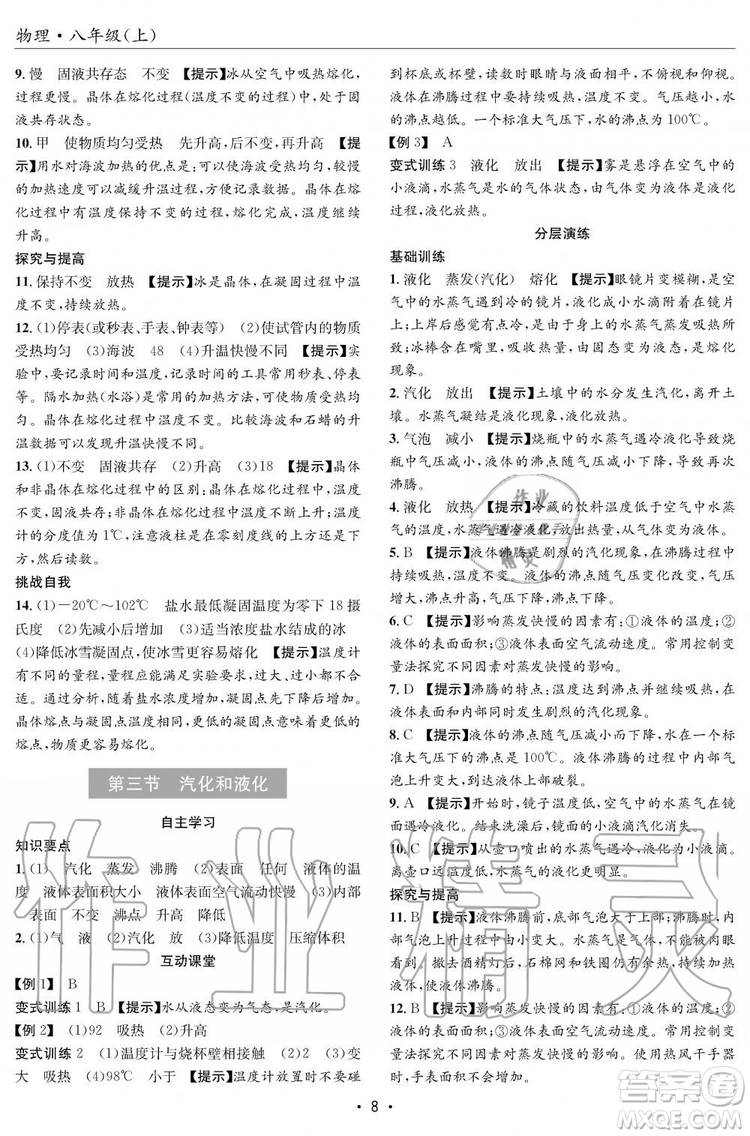 物理·八年级(上)
9. 慢　固液共存态　不变　【提示】冰从空气中吸热熔化，
过程更慢。晶体在熔化过程(温度不变的过程)中处于固
液共存状态。
10. 甲　使物质均匀受热　先升高，后不变，再升高　【提
示】用水对海波加热的优点是：可以均匀受热，较慢
的加热速度可以减缓升温过程，方便记录。晶体在熔
化过程中有温度保持不变的过程，熔化完成，温度继续
升高。
探究与提高
11. 保持不变　放热　【提示】冰是晶体，在凝固过程中温度
不变，持续放热。
12. (1)停表(或秒表、手表、钟表等)　(2)使试管内的物质
受热均匀　(3)海波　48　(4)升温快慢不同　【提示】实
验中，要记录时间和温度，记录时间的工具常用秒表、停表
等。隔水加热(水浴)是常用的加热方法，可以使受热均
匀。晶体在熔化过程中温度不变。比较海波和石蜡的升
温数据可以发现升温快慢不同。
13. (1)不变　固液共存　(2)升高　(3)18　【提示】晶体
和非晶体在熔化过程中的区别：晶体在熔化过程中，温度
不变，固液共存；非晶体在熔化过程中，温度上升。温度
计的分度值为1℃，注意液柱是在零刻度线的上方还是下
方，然后读数。
挑战自我
14. (1)－20℃～102℃　盐水最低凝固温度为零下18摄
氏度　(2)先减小后增加　(3)适当浓度盐水结成的冰
(4)降低冰雪凝固点，使冰雪更容易熔化　【提示】温度计
有一定的量程，量程应合适，过大、过小都不利于完成实
验。分析数据发现，凝固点随着盐水浓度先降低后增加。
晶体熔点和凝固点相同。降低冰雪的凝固点就是降低它的
熔点，物质更容易熔化。
第三节　汽化和液化
自主学习
知识要点
1. (1)　汽化　蒸发　沸腾　(2)表面　任何　液体的温
度　液体表面积大小　液体表面空气流动快慢　(3)内部
表面　不变　沸点　升高　降低
2. (1)气　液　(2)汽化　放　(3)降低温度　压缩体积
互动课堂
【例1】　B
变式训练1　BD　【提示】水从液态变为气态，是汽化。
【例2】　(1)92　吸热　(2)升高
变式训练2　(1)温度计与烧杯壁相接触　(2)乙　(3)变
大　吸热　(4)98℃　小于　【提示】温度计放置时不要碰
到杯底或杯壁，读数时眼睛与液面相平，不能俯视和仰视。
液体在沸腾过程中要持续吸热，汽化。气压越小，水的沸
点越低。一个标准大气压下，水的沸点为100℃。
【例3】　A
变式训练3　液化　放出　【提示】雾是悬浮在空气中的
小液滴，水蒸气是水的气体状态，由气体变为液体是液化过程，
液化放热。
分层演练
基础训练
1. 液化　蒸发(汽化)　熔化　【提示】眼镜片变模糊，是空
气中的水蒸气遇到冷的镜片，液化成小水滴附着在镜片
上；上岸后感觉有点冷，是身上的水蒸气蒸发吸热导致
的；冰棒含在嘴里一会儿就没了，由固态变为液态，是熔化
现象。
2. 汽化　放出　【提示】土壤中的水分发生汽化，离开土
壤。水蒸气凝结是液化现象，液化放热。
3. 气泡　减小　【提示】烧瓶中的水蒸气遇冷液化导致烧
瓶中气压减小，液体的沸点随气压的减小而下降，导致再
次沸腾。
4. 液化　放热　【提示】冷藏的饮料温度低于空气中水蒸
气的温度，水蒸气遇冷液化，放出热量。
5. B　【提示】液体沸腾是剧烈的汽化现象，在沸腾过程中持
续吸热，温度不变。液体的沸点随气压变化改变，气压升
高，沸点升高，气压下降，沸点下降。
6. C　【提示】影响蒸发快慢的因素有：①液体的温度；②液
体的表面面积；③液体表面空气流动速度。常用控制变
量法探究不同因素对蒸发快慢的影响。
7. D　【提示】沸腾的特点：温度达到沸点，持续吸热，在液
体的表面和内部同时发生剧烈的汽化现象。
8. C　【提示】液体的沸点随气压减小而下降，水在一个标准
大气压下的沸点是100℃。液体沸腾时内部的气泡体积
增大，在液体中上升破裂。
9. A　【提示】开始时，镜子温度低，空气中的水蒸气在镜
面遇冷液化。结束洗澡后，镜面的小液滴汽化消失。
10. C　【提示】从壶口喷出的水蒸气温度高，难以液化。
离壶口远处温度低，水蒸气的液化更明显。
探究与提高
11. B　【提示】液体沸腾前，底部气泡大顶部小；沸腾时，内
部气泡上升，由小变大。水蒸气是无色的，不能被肉眼
看到。撤去酒精灯后，石棉网和铁圈仍有余热，可使液
体继续沸腾。
12. B　【提示】影响蒸发快慢的因素有：液体的温度、表面
面积、表面空气流动速度。常见的使用热风干手器时，
使手表面温度升高，空气流动速度加快，加快了蒸发。
·8·
作业精灵
作业精灵
答案圈
MXQE.COM